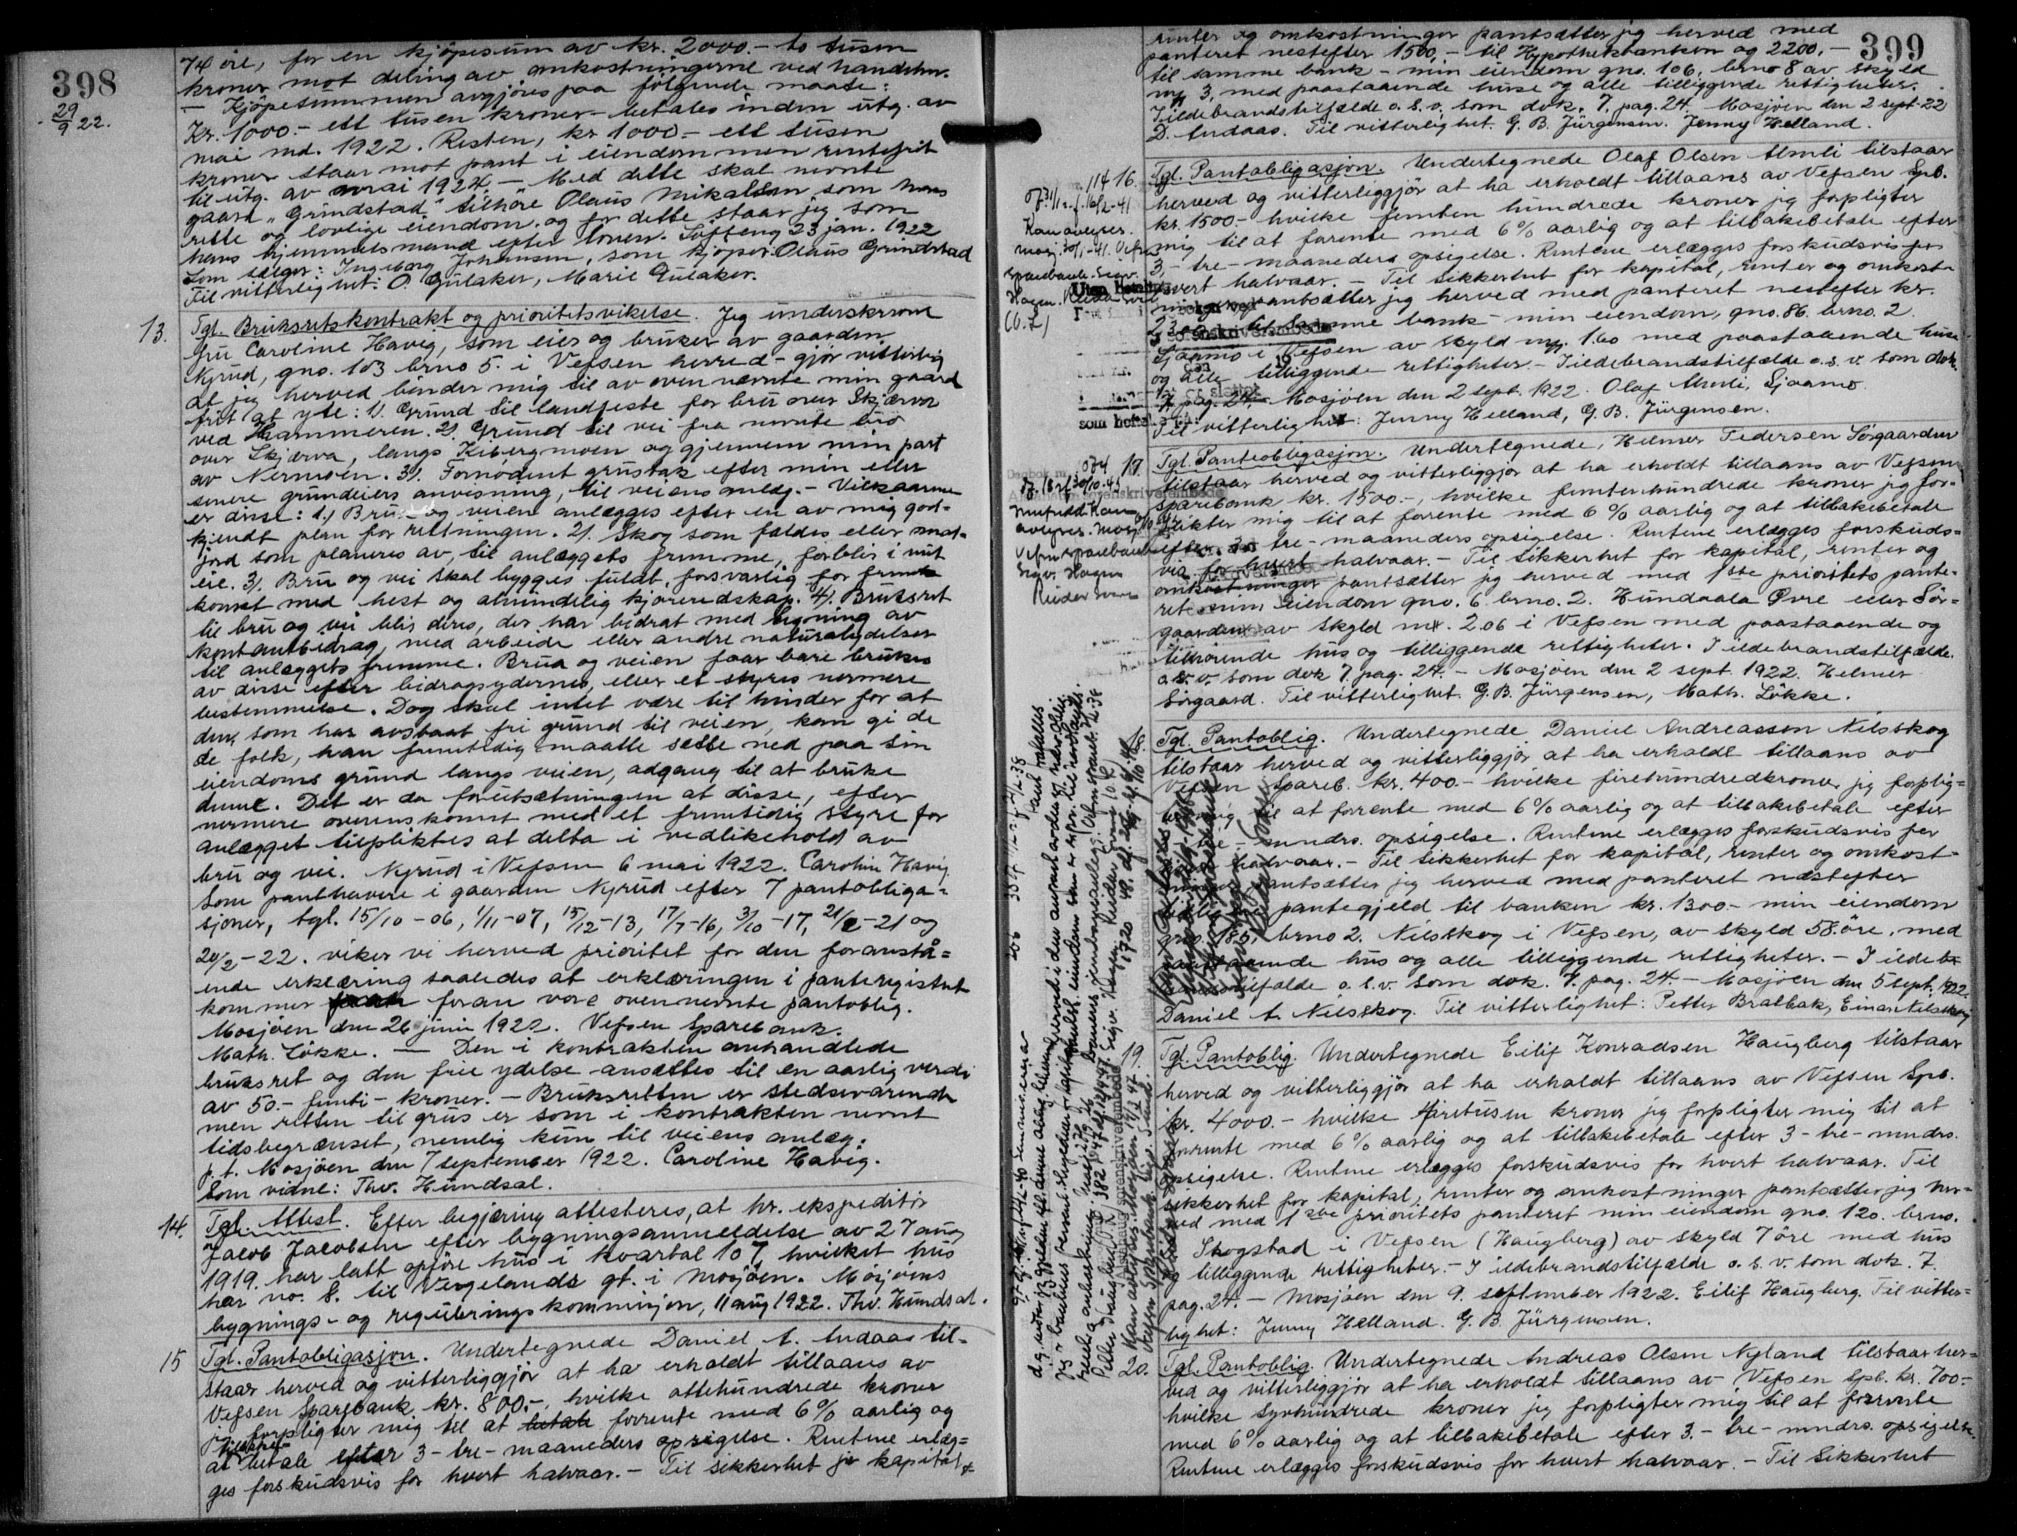 398
29/9 22.
74 öre, for en kjöpesum av kr. 2000.- to tusen
kroner mot deling av omkostningerne ved handelen.
- Kjöpesummen avgjöres paa fölgende maate:
Kr. 1000.- ett tusen kroner - betales inden utg. av
mai md. 1922. Resten, kr 1000.- ett tusen
kroner staar mot pant i eiendommen rentefrit
til utg. av mai 1924. - Med dette skal nevnte
gaard "Grindstad" tilhöre Olaus Mikalsen som hans
rette og lovlige eiendom. og for dette staar jeg som
hans hjemmelsmand efter loven. Softeng 23 jan. 1922
Som sælger: Ingeborg Johansen, som kjöper Olaus Grindstad
Til vitterlighet: O. Gulaker, Marie Gulaker.
13. Tgl. Bruksretskontrakt og prioritetsvikelse. Jeg underskrevne
fru Caroline Havig, som eier og bruker av gaarden
Nyrud, gno. 103 brno 5. i Vefsen herred - gjör vitterlig
at jeg herved binder mig til av oven nævnte min gaard
frit at yte: 1). Grund til landfeste for bru over Skjærva
ved Hammeren. 2). Grund til vei fra nevnte bro
over Skjerva, langs Kibergmoen og gjennem min part
av Nermoen. 3). Fornödent grustak efter min eller
senere grundeiers anvisning, til veiens anlæg. - Vilkaarene
er disse: 1.) Bru og veien anlægges efter en av mig god-
kjendt plan for retningen. 2). Skog som fældes eller mat-
jord som planeres av, til anlæggets fremme, forblir i mit
eie. 3). Bru og vei skal bygges fuldt forsvarlig for frem-
komst med hest og almindelig kjöreredskap. 4). Bruksret
til bru og vei blir deres, der har bidrat med ligning av
kontantbidrag, med arbeide eller andre naturalydelser
til anlæggets fremme. Brua og veien faar bare brukes
av disse efter bidragsydernes, eller et styres nermere
bestemmelse. Dog skal intet være til hinder for at
den, som har avstaat fri grund til veien, kan gi de
de folk, han fremtidig maatte sette ned paa sin
eiendoms grund langs veien, adgang til at bruke
denne. Det er da forutsetningen at disse, efter
nermere overenskomst med et fremtidig styre for
anlægget tilpliktes at delta i vedlikehold av
bru og vei. Nyrud i Vefsen 6 mai 1922. Caroline Havig
Som panthavere i gaarden Nyrud efter 7 pantobliga-
sjoner, tgl. 15/10-06, 1/11-07, 15/12-13, 17/7-16, 3/10-17, 21/2-21 og
20/2-22. viker vi herved prioritet for den foranstå-
ende erklæring saaledes at erklæringen i panteregistret
kommer foran vore ovennevnte pantoblig.
Mosjöen den 26 juni 1922. Vefsen Sparebank.
Math. Lökke. - Den i kontrakten omhandlede
bruksret og den frie ydelse ansættes til en aarlig verdi
av 50.- femti - kroner. - Bruksretten er stedsevarende
men retten til grus er som i kontrakten nevnt
tidsbegrænset, nemlig kun til veiens anlæg.
p.t. Mosjöen den 7 september 1922. Caroline Havig.
Som vidne: Thv. Hundsal.
14. Tgl. Attest. Efter begjæring attesteres, at hr. ekspeditör
Jacob Jacobsen efter bygningsanmeldelse av 27 aug
1919. har latt opföre hus i kvartal 107, hvilket hus
har no. 8. til Vergelands gt. i Mosjöen. Mosjöens
bygnings- og reguleringskommisjon, 11 aug 1922. Thv. Hundsal.
15 Tgl. Pantobligasjon. Undertegnede Daniel A. Andaas til-
staar herved og vitterliggjör at ha erholdt tillaans av
Vefsen Sparebank kr. 800.-, hvilke ottehundrede kroner
jeg forpligter mig til at betale forrente med 6% aarlig og
tilbake-
at betale efter 3-tre-maaneders opsigelse. Rentene erlæg-
ges forskudsvis for hvert halvaar. - Til sikkerhet for kapital,
399
renter og omkostninger pantsætter jeg herved med
panteret nestefter 1500,- til Hypothekbanken og 2200,-
til samme bank - min eiendom gno. 106, brno 8 av skyld
mk 3, med paastaaende huse og alle tilliggende rettigheter.
I ildebrandstilfælde o.s.v. som dok. 7. pag. 24. Mosjöen den 2 sept. 22
D. Andaas. Til vitterlighet. G. B. Jürgensen. Jenny Helland.
16. Tgl. Pantobligasjon. Undertegnede Olaf Olsen Almli tilstaar
herved og vitterliggjör at ha erholdt tillaans av Vefsen Spb.
kr. 1500.- hvilke femten hundrede kroner jeg forpligter
mig til at forrente med 6% aarlig og at tilbakebetale efter
3,- tre - maaneders opsigelse. Rentene erlægges forskudsvis for
hvert halvaar. - Til sikkerhet for kapital, renter og omkost-
ninger pantsætter jeg herved med panteret nestefter kr.
til samme bank - min eiendom, gno. 86. brno. 2
Sjaamo i Vefsen av skyld mk. 1.60 med paastaaende huse
og alle tilliggende rettigheter. - I ildebrandstilfælde o.s.v. som dok.
7, pag. 24. Mosjöen den 2 sept. 1922. Olaf Almli, Sjaamo.
Til vitterlighet: Jenny Helland, G. B. Jürgensen.
17. Tgl. Pantobligasjon. Undertegnede, Helmer Pedersen Sörgaarden
tilstaar herved og vitterliggjör at ha erholdt tillaans av Vefsen
sparebank kr. 1500.-, hvilke femtenhundrede kroner jeg for-
plikter mig til at forrente med 6% aarlig og at tilbakebetale
efter 3 tre - maaneders opsigelse. Rentene erlægges forskuds-
vis for hvert halvaar. - Til sikkerhet for kapital, renter og
omkostninger pantsætter jeg herved med 1ste prioritets pante-
ret min eiendom gno. 6. brno. 2. Hundaala Øvre eller Sör-
gaarden av skyld mk. 2.06 i Vefsen med paastaaende og
tilhörende hus og tilliggende rettigheter. I ildebrandstilfælde
o.s.v. som dok 7. pag. 24. - Mosjöen den 2 sept. 1922. Helmer
Sörgaard. Til vitterlighet. G. B. Jürgensen, Math. Lökke.
18. Tgl. Pantoblig. Undertegnede Daniel Andreassen Nilsskog
tilstaar herved og vitterliggjör at ha erholdt tillaans av
Vefsen Spareb. kr. 400.- hvilke firehundredkroner jeg forplig-
ter mig til at forrente med 6% aarlig og at tilbakebetale efter
tre - mndrs. opsigelse. Rentene erlægges forskudsvis for
hvert halvaar. - Til sikkerhet for kapital, renter og omkost-
ninger pantsætter jeg herved med panteret næstefter
pantegjeld til banken kr. 1300.- min eiendom
gno. 185, brno 2. Nilsskog i Vefsen, av skyld 58 öre, med
paastaaende hus og alle tilliggende rettigheter. - I ildebr
andstilfælde o.s.v. som dok. 7. pag. 24. - Mosjöen den 5 sept. 1922.
Daniel A. Nilsskog. Til vitterlighet: Petter Bratbak, Einar Nilsskog
19. Tgl. Pantoblig. Undertegnede Eilif Konradsen Haugberg tilstaar
herved og vitterliggjör at ha erholdt tillaans av Vefsen Spb.
kr. 4000.- hvilke firetusen kroner jeg forpligter mig til at
forrente med 6% aarlig og at tilbakebetale efter 3-tre-mndrs.
opsigelse. Rentene erlægges forskudsvis for hvert halvaar. Til
sikkerhet for kapital, renter og omkostninger pantsætter jeg her-
ved med 1ste prioritets panteret min eiendom gno. 120. brno.
Skogstad i Vefsen (Haugberg) av skyld 7 öre med hus
og tilliggende rettigheter. - I ildebrandstilfælde o.s.v. som dok. 7.
pag. 24. - Mosjöen den 9. september 1922. Eilif Haugberg. Til vitter-
lighet: Jenny Helland. G. B. Jürgensen.
20. Tgl. Pantoblig. Undertegnede Andreas Olsen Nyland tilstaar her-
ved og vitterliggjör at ha erholdt tillaans av Vefsen Spb. kr. 700.-
hvilke syvhundrede kroner jeg forpligter mig til at forrente
med 6% aarlig og at tilbakebetale efter 3.- tre - mndrs. opsigelse.
Rentene erlægges forskudsvis for hvert halvaar. - Til sikkerhet